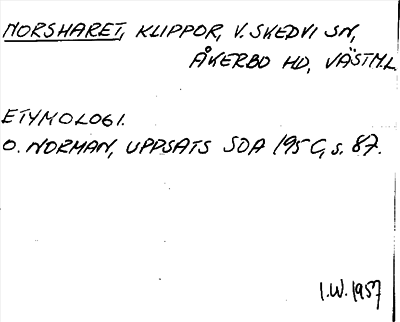 NORSHARET, KLIPPOR, V. SKEDVI SN,
ÅKERBO HD, VÄSTM.L
ETYMOLOGI.
O. NORMAN, UPPSATS SOA 195C, s. 87.
I.W. 1957